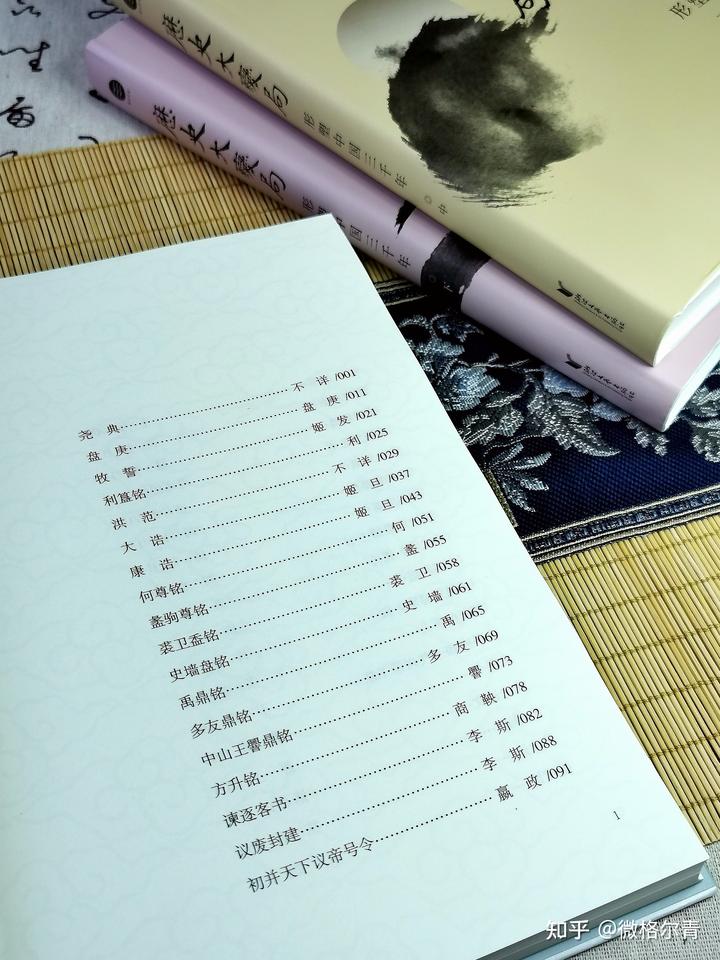 歷史大變局 形塑中国三千年 中
歷史大變局 形塑中国三千年 下
尧典……不详 /001
盘庚……盘庚 /011
牧誓……姬发 /021
利簋铭……利 /025
洪范……不详 /029
大诰……姬旦 /037
康诰……姬旦 /043
何尊铭……何 /051
盠驹尊铭……盠 /055
裘卫盉铭……裘卫 /058
史墙盘铭……史墙 /061
禹鼎铭……禹 /065
多友鼎铭……多友 /069
中山王鼎铭…… /073
方升铭……商鞅 /078
谏逐客书……李斯 /082
议废封建……李斯 /088
初并天下议帝号令……嬴政 /091
1
知乎 @微格尔青